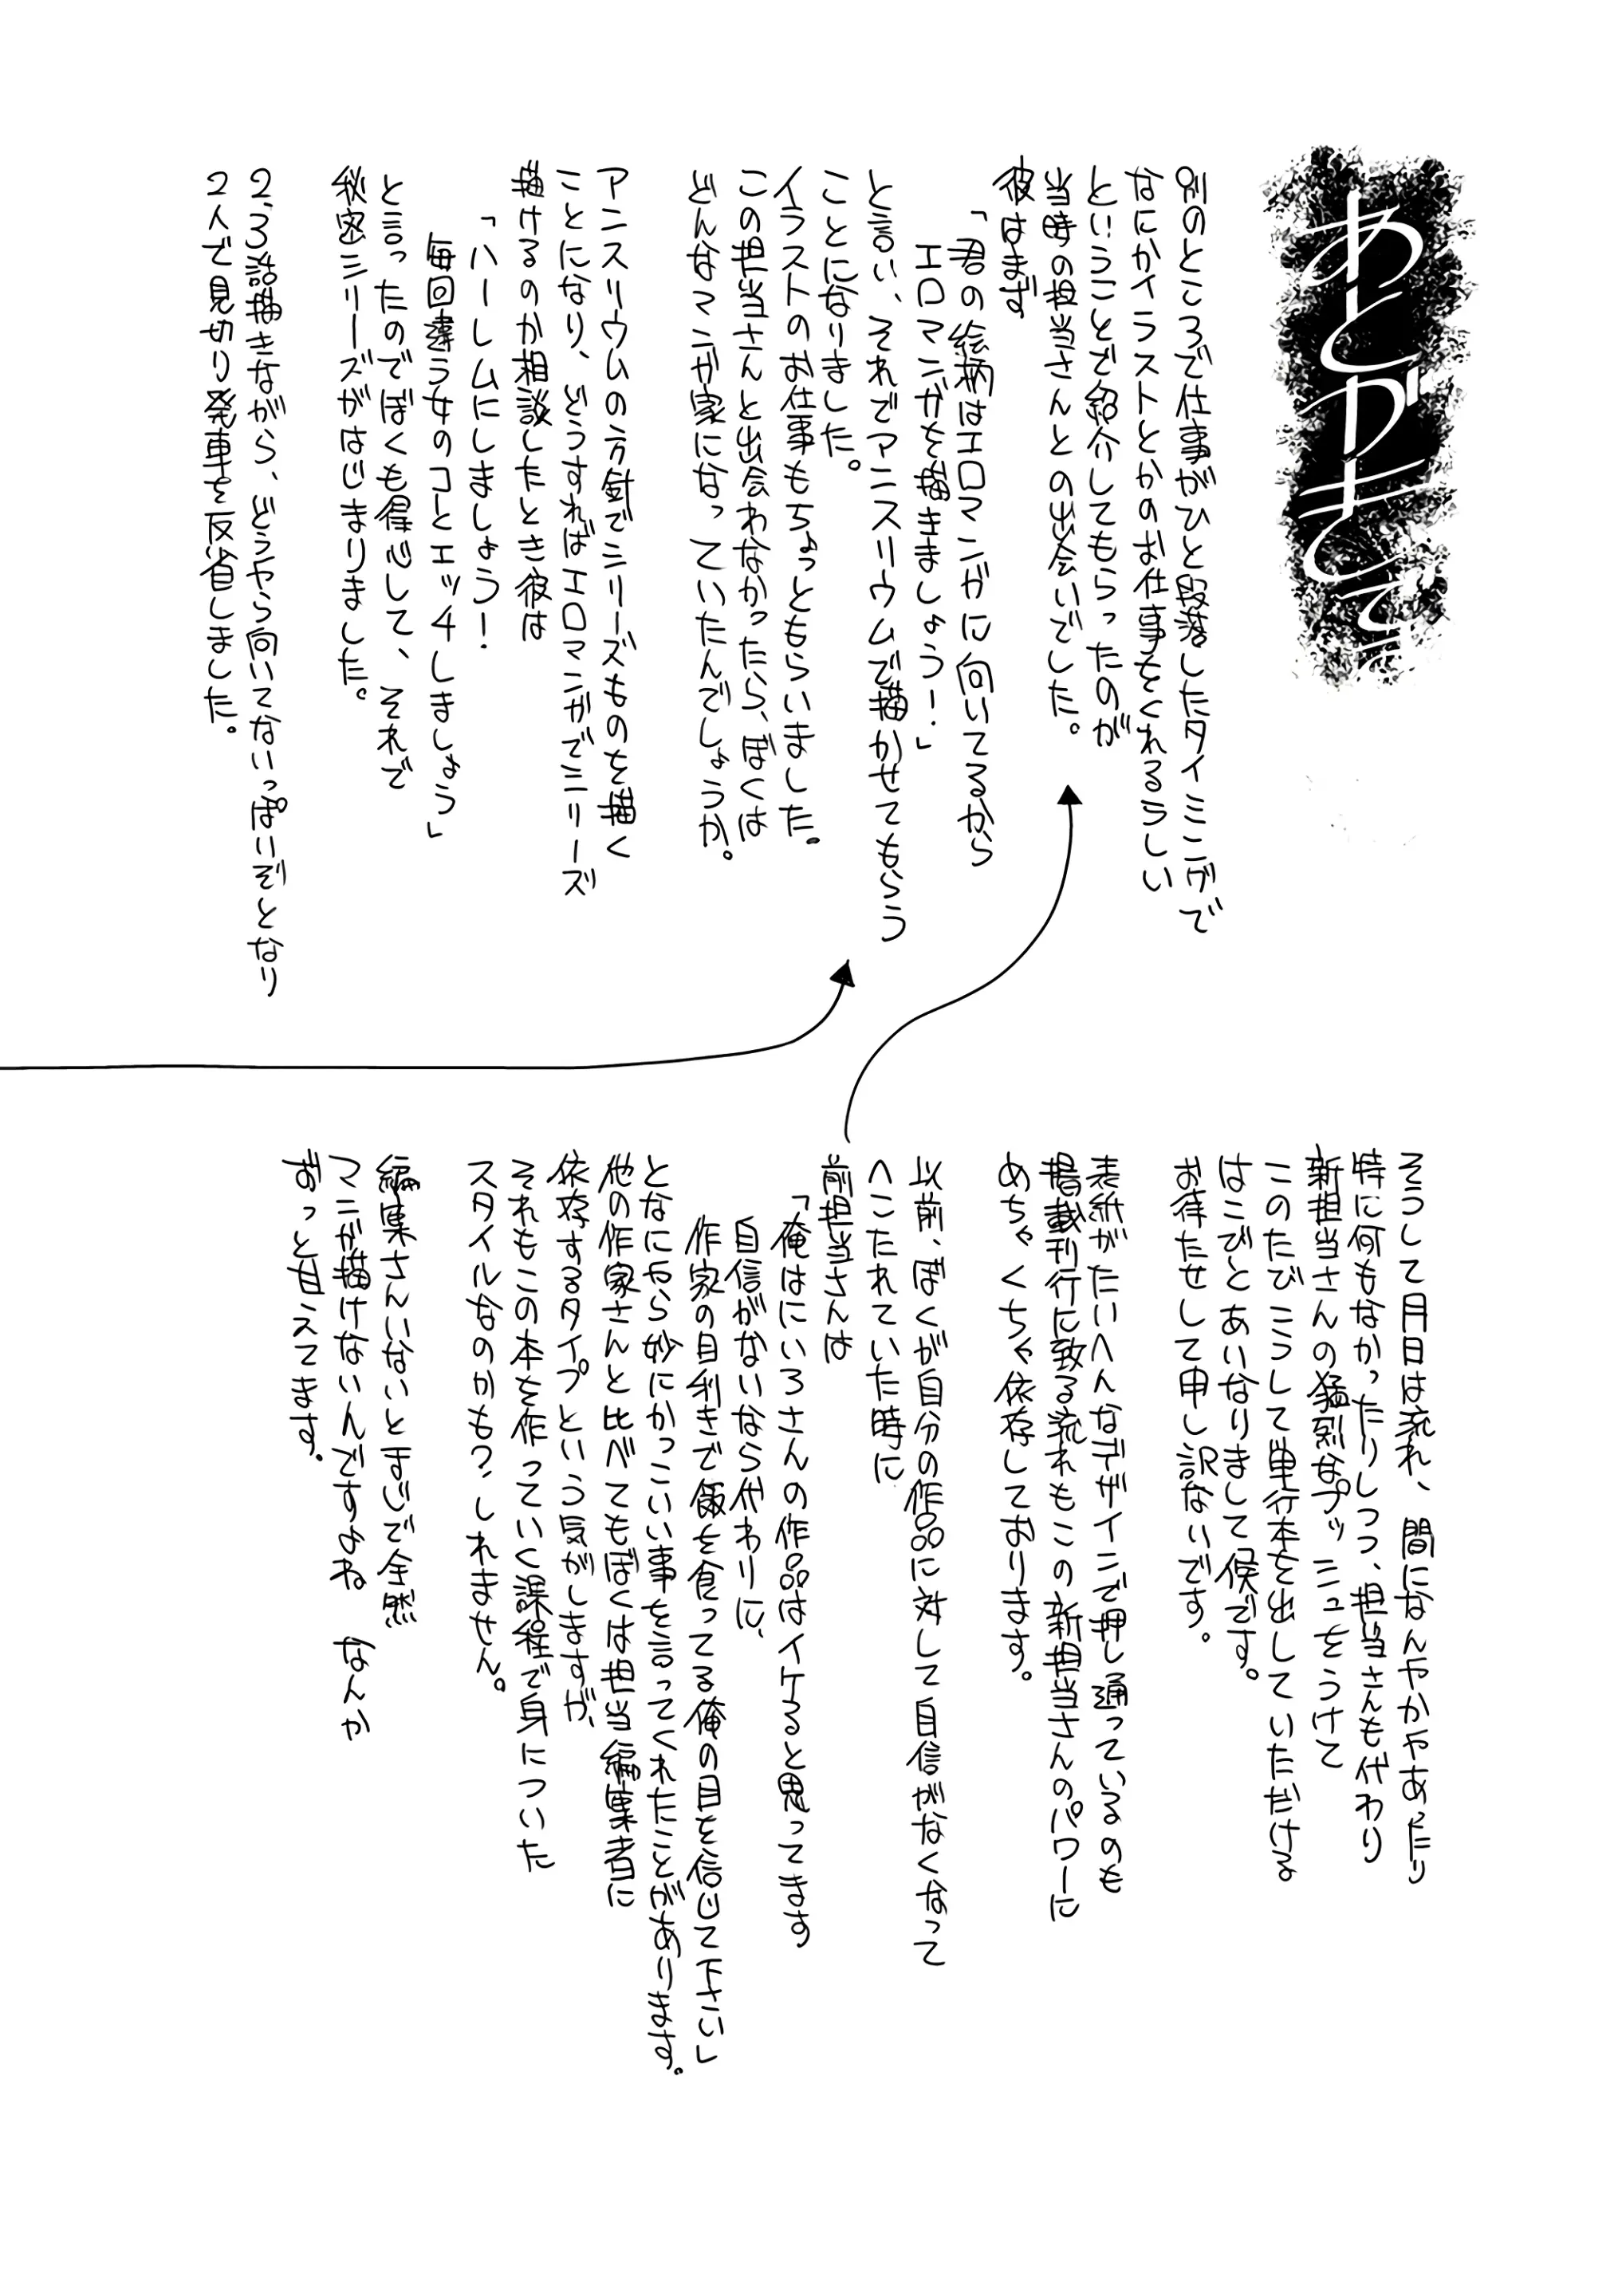 あとがきまで
別のところで仕事がひと段落したタイミングで
なにかイラストとかのお仕事をくれるらしい
ということで紹介してもらったのが
当時の担当さんとの出会いでした。
彼はまず
「君の絵柄はエロマンガに向いてるから
エロマンガを描きましょう!」
と言い、それでアンスリウムで描かせてもらう
ことになりました。
イラストのお仕事もちょっともらいました。
この担当さんと出会わなかったら、ぼくは
どんなマンガ家になっていたんでしょうか。
アンスリウムの方針でシリーズものを描く
ことになり、どうすればエロマンガでシリーズ
描けるのか相談したとき彼は
「ハーレムにしましょう!
毎回違う女のコとエッチしましょう」
と言ったのでぼくも得心して、それで
秘密シリーズがはじまりました。
2、3話描きながら、どうやら向いてないっぽいぞとなり
2人で見切り発車を反省しました。
そうして月日は流れ、間になんやかやあったり
特に何もなかったりしつつ、担当さんも代わり
新担当さんの猛烈なプッシュをうけて
このたびこうして単行本を出していただける
はこびとあいなりまして候です。
お待たせして申し訳ないです。
表紙がたいへんなデザインで押し通っているのも
掲載刊行に致る流れもこの新担当さんのパワーに
めちゃくちゃ依存しております。
以前、ぼくが自分の作品に対して自信がなくなって
へこたれていた時に
前担当さんは
「俺はにいろさんの作品はイケると思ってます
自信がないなら代わりに、
作家の目利きで飯を食ってる俺の目を信じて下さい」
となにやら妙にかっこいい事を言ってくれたことがあります。
他の作家さんと比べてもぼくは担当編集者に
依存するタイプという気がしますが、
それもこの本を作っていく課程で身についた
スタイルなのかも?しれません。
編集さんいないとまじで全然
マンガ描けないんですよね なんか
ずっと甘えてます。